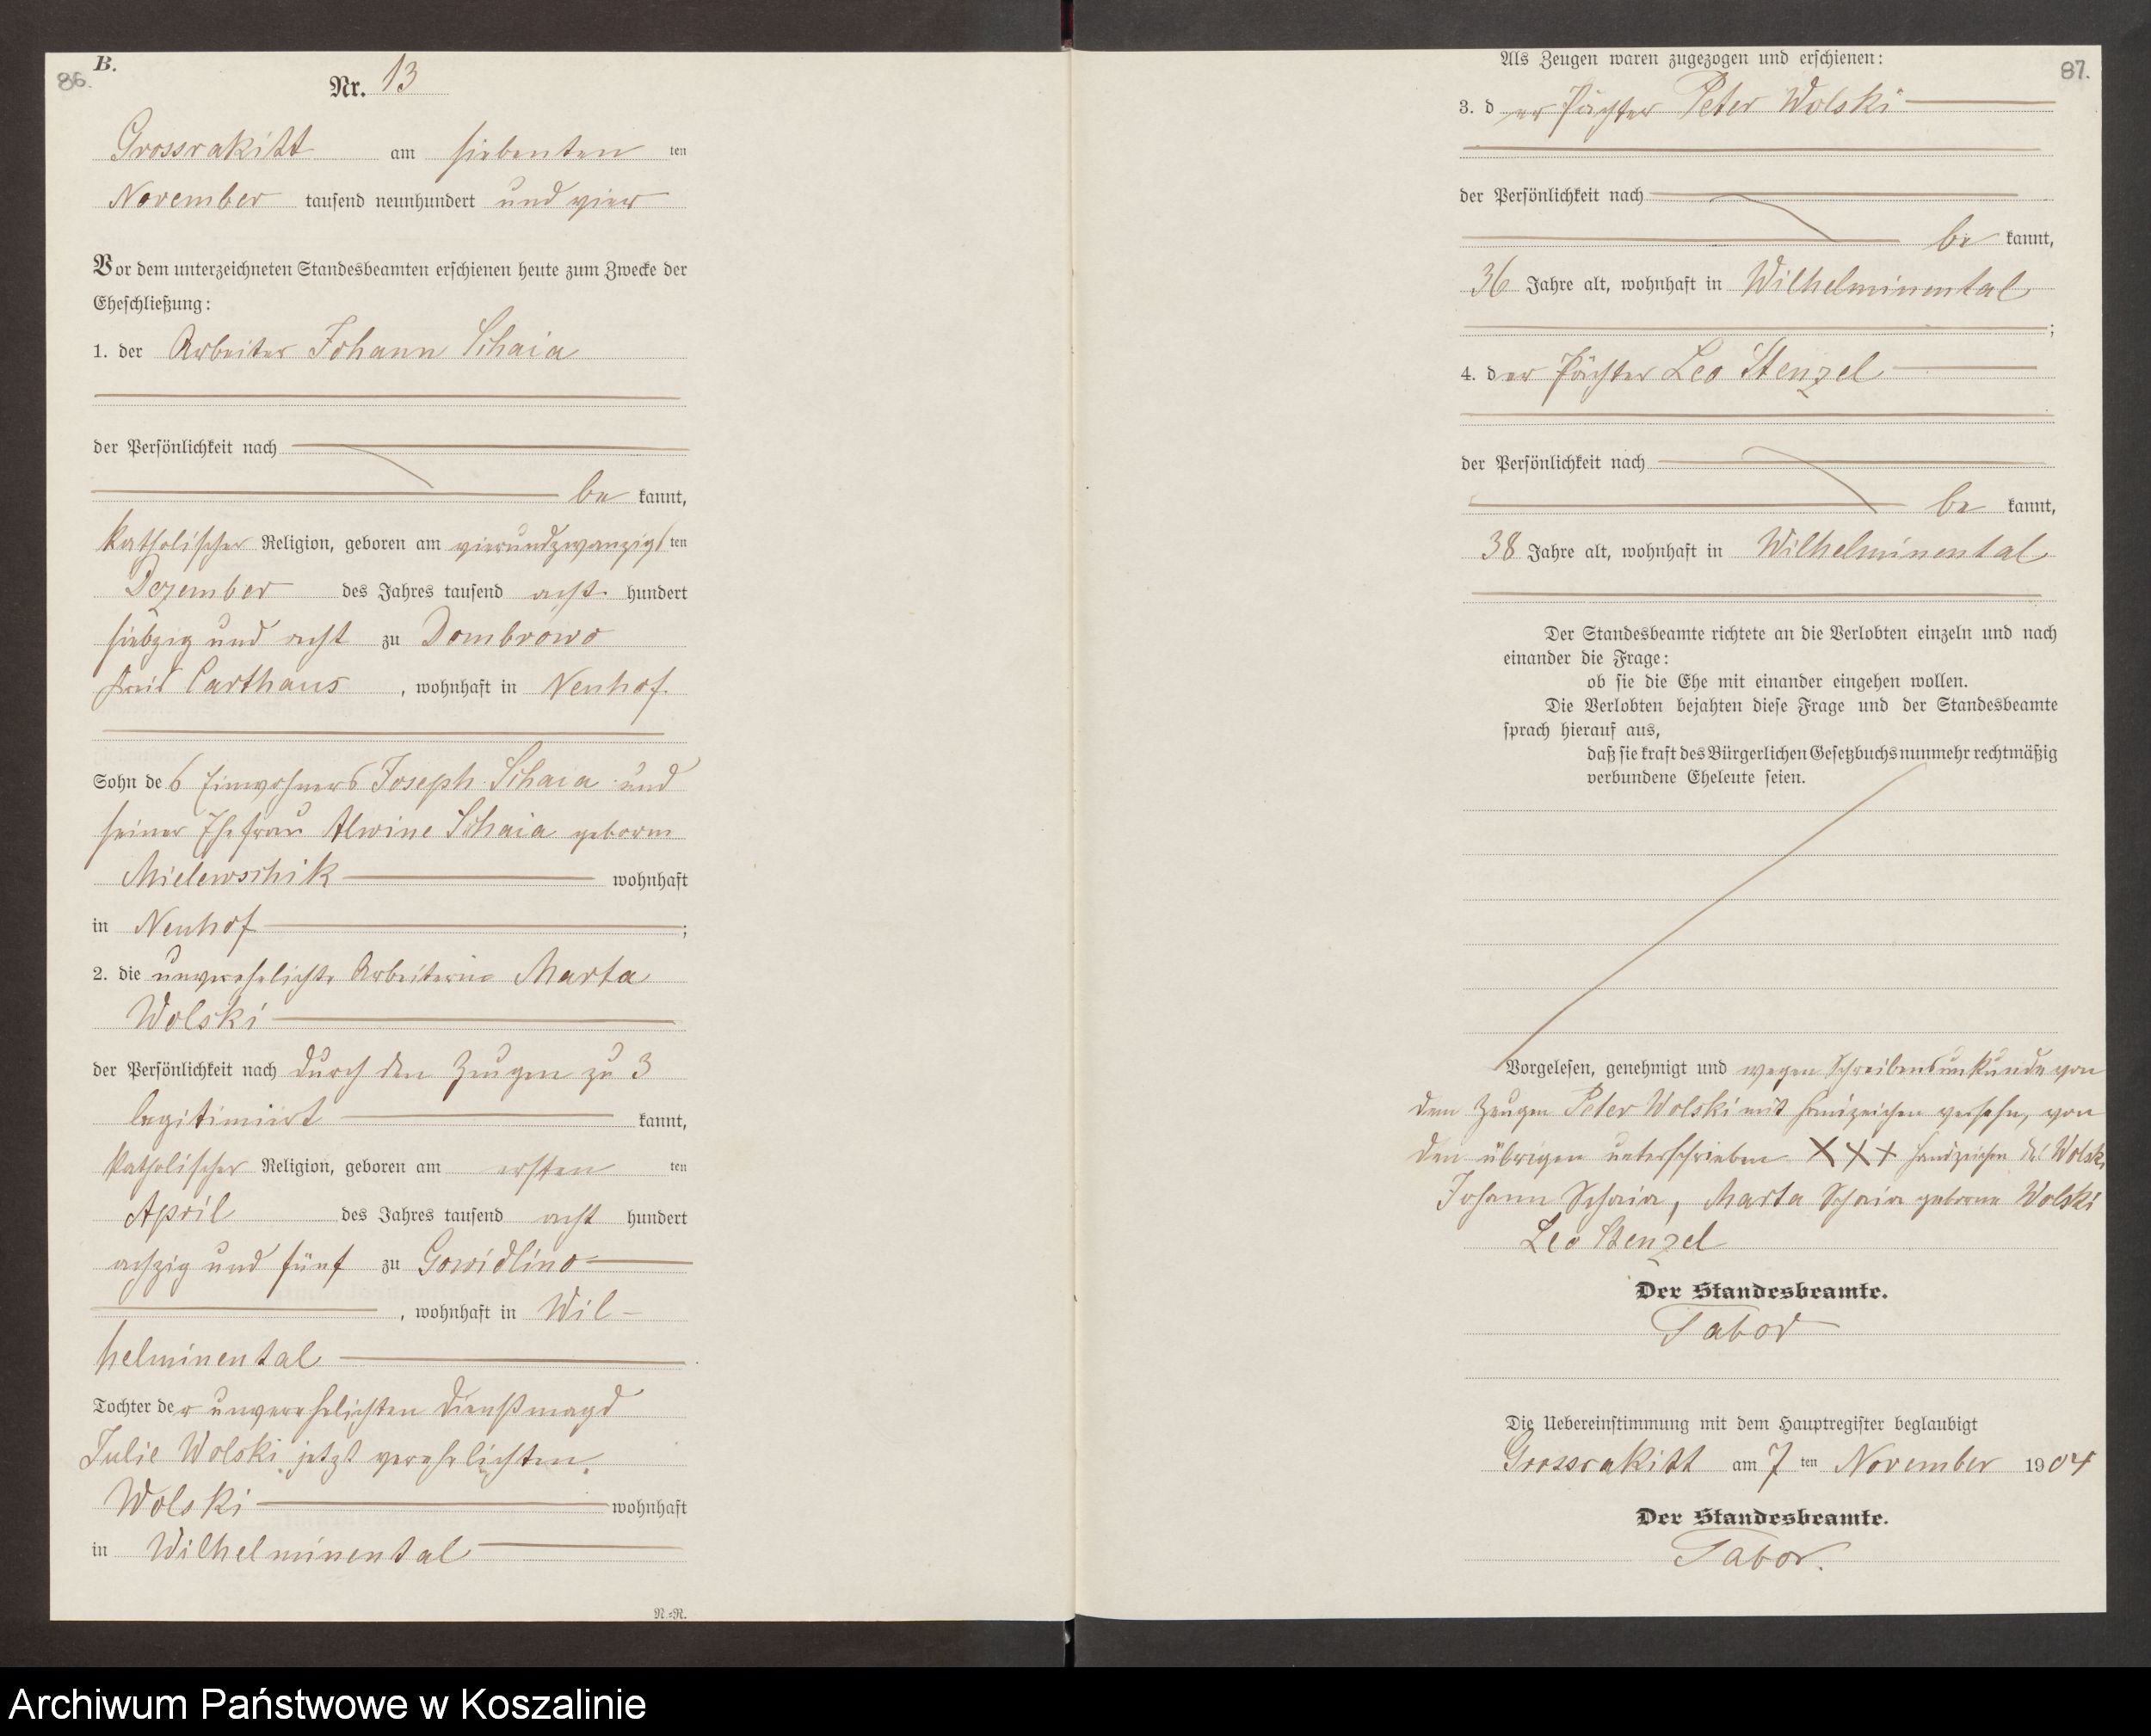 B.
86.
Nr. 13
Grossrakitt am siebenten ten
November tausend neunhundert und vier
Vor dem unterzeichneten Standesbeamten erschienen heute zum Zwecke der
Eheschließung:
1. der Arbeiter Johann Schaia
der Persönlichkeit nach
be kannt,
katholischer Religion, geboren am vierundzwanzigs ten
Dezember des Jahres tausend acht hundert
siebzig und acht zu Dombrowo
Kreis Carthaus , wohnhaft in Neuhof.
Sohn des Einwohners Joseph Schaia und
seiner Ehefrau Alwine Schaia geboren
Mielewschik wohnhaft
in Neuhof ;
2. die unverehelichte Arbeiterin Marta
Wolski
der Persönlichkeit nach durch den Zeugen zu 3
legitimirt kannt,
katholischer Religion, geboren am ersten ten
April des Jahres tausend acht hundert
achzig und fünf zu Gowidlino
, wohnhaft in Wil-
helminental
Tochter der unverehelichten Dienstmagd
Julie Wolski jetzt verehelichten
Wolski wohnhaft
in Wilhelminental
N=N.
87.
Als Zeugen waren zugezogen und erschienen:
3. der Pächter Peter Wolski
der Persönlichkeit nach
be kannt,
36 Jahre alt, wohnhaft in Wilhelminental
;
4. der Pächter Leo Stenzel
der Persönlichkeit nach
be kannt,
38 Jahre alt, wohnhaft in Wilhelminental
Der Standesbeamte richtete an die Verlobten einzeln und nach
einander die Frage:
ob sie die Ehe mit einander eingehen wollen.
Die Verlobten bejahten diese Frage und der Standesbeamte
sprach hierauf aus,
daß sie kraft des Bürgerlichen Gesetzbuchs nunmehr rechtmäßig
verbundene Eheleute seien.
Vorgelesen, genehmigt und wegen Schreibensunkunde von
dem Zeugen Peter Wolski mit Handzeichen versehn, von
den übrigen unterschrieben XXX Handzeichen des Wolski
Johann Schaia, Marta Schaia geborne Wolski
Leo Stenzel
Der Standesbeamte.
Tabor
Die Uebereinstimmung mit dem Hauptregister beglaubigt
Grossrakitt am 7 ten November 1904
Der Standesbeamte.
Tabor.
Archiwum Państwowe w Koszalinie